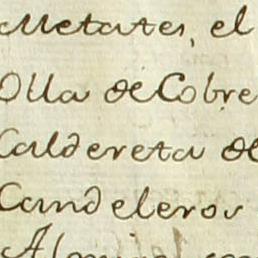 Metates, el
Olla de Cobre
Caldereta de
Candeleros